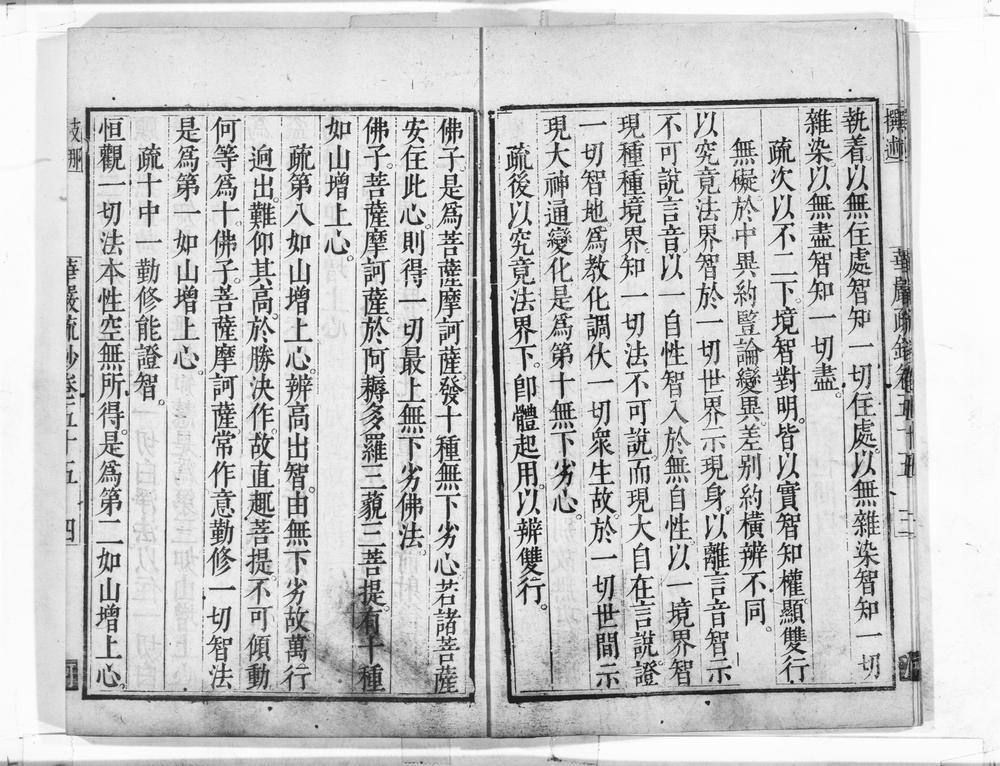 執着。以無住處智知一切住處。以無雜染智知一切
雜染以無盡智知一切盡。
疏次以不二下。境智對明。皆以實智知權。顯雙行
無礙。於中異約豎論變異。差別約橫辨不同。
以究竟法界智於一切世界示現身。以離言音智示
不可說言音以一自性智入於無自性。以一境界智
現種種境界。知一切法不可說。而現大自在言說。證
一切智地爲教化調伏一切衆生故於一切世間示
現大神通變化是爲第十無下劣心。
疏後以究竟法界下。卽體起用。以辨雙行。
佛子。是爲菩薩摩訶薩發十種無下劣心。若諸菩薩
安住此心。則得一切最上無下劣佛法。
佛子。菩薩摩訶薩於阿耨多羅三藐三菩提。有十種
如山增上心。
疏第八如山增上心。辨高出智。由無下劣故萬行
逈出。難仰其高。於勝決作。故直趣菩提。不可傾動
何等爲十。佛子。菩薩摩訶薩。常作意勤修一切智法
是爲第一如山增上心。
疏十中一勤修能證智。
恒觀一切法本性空無所得。是爲第二如山增上心。
華嚴疏鈔卷五十五 四